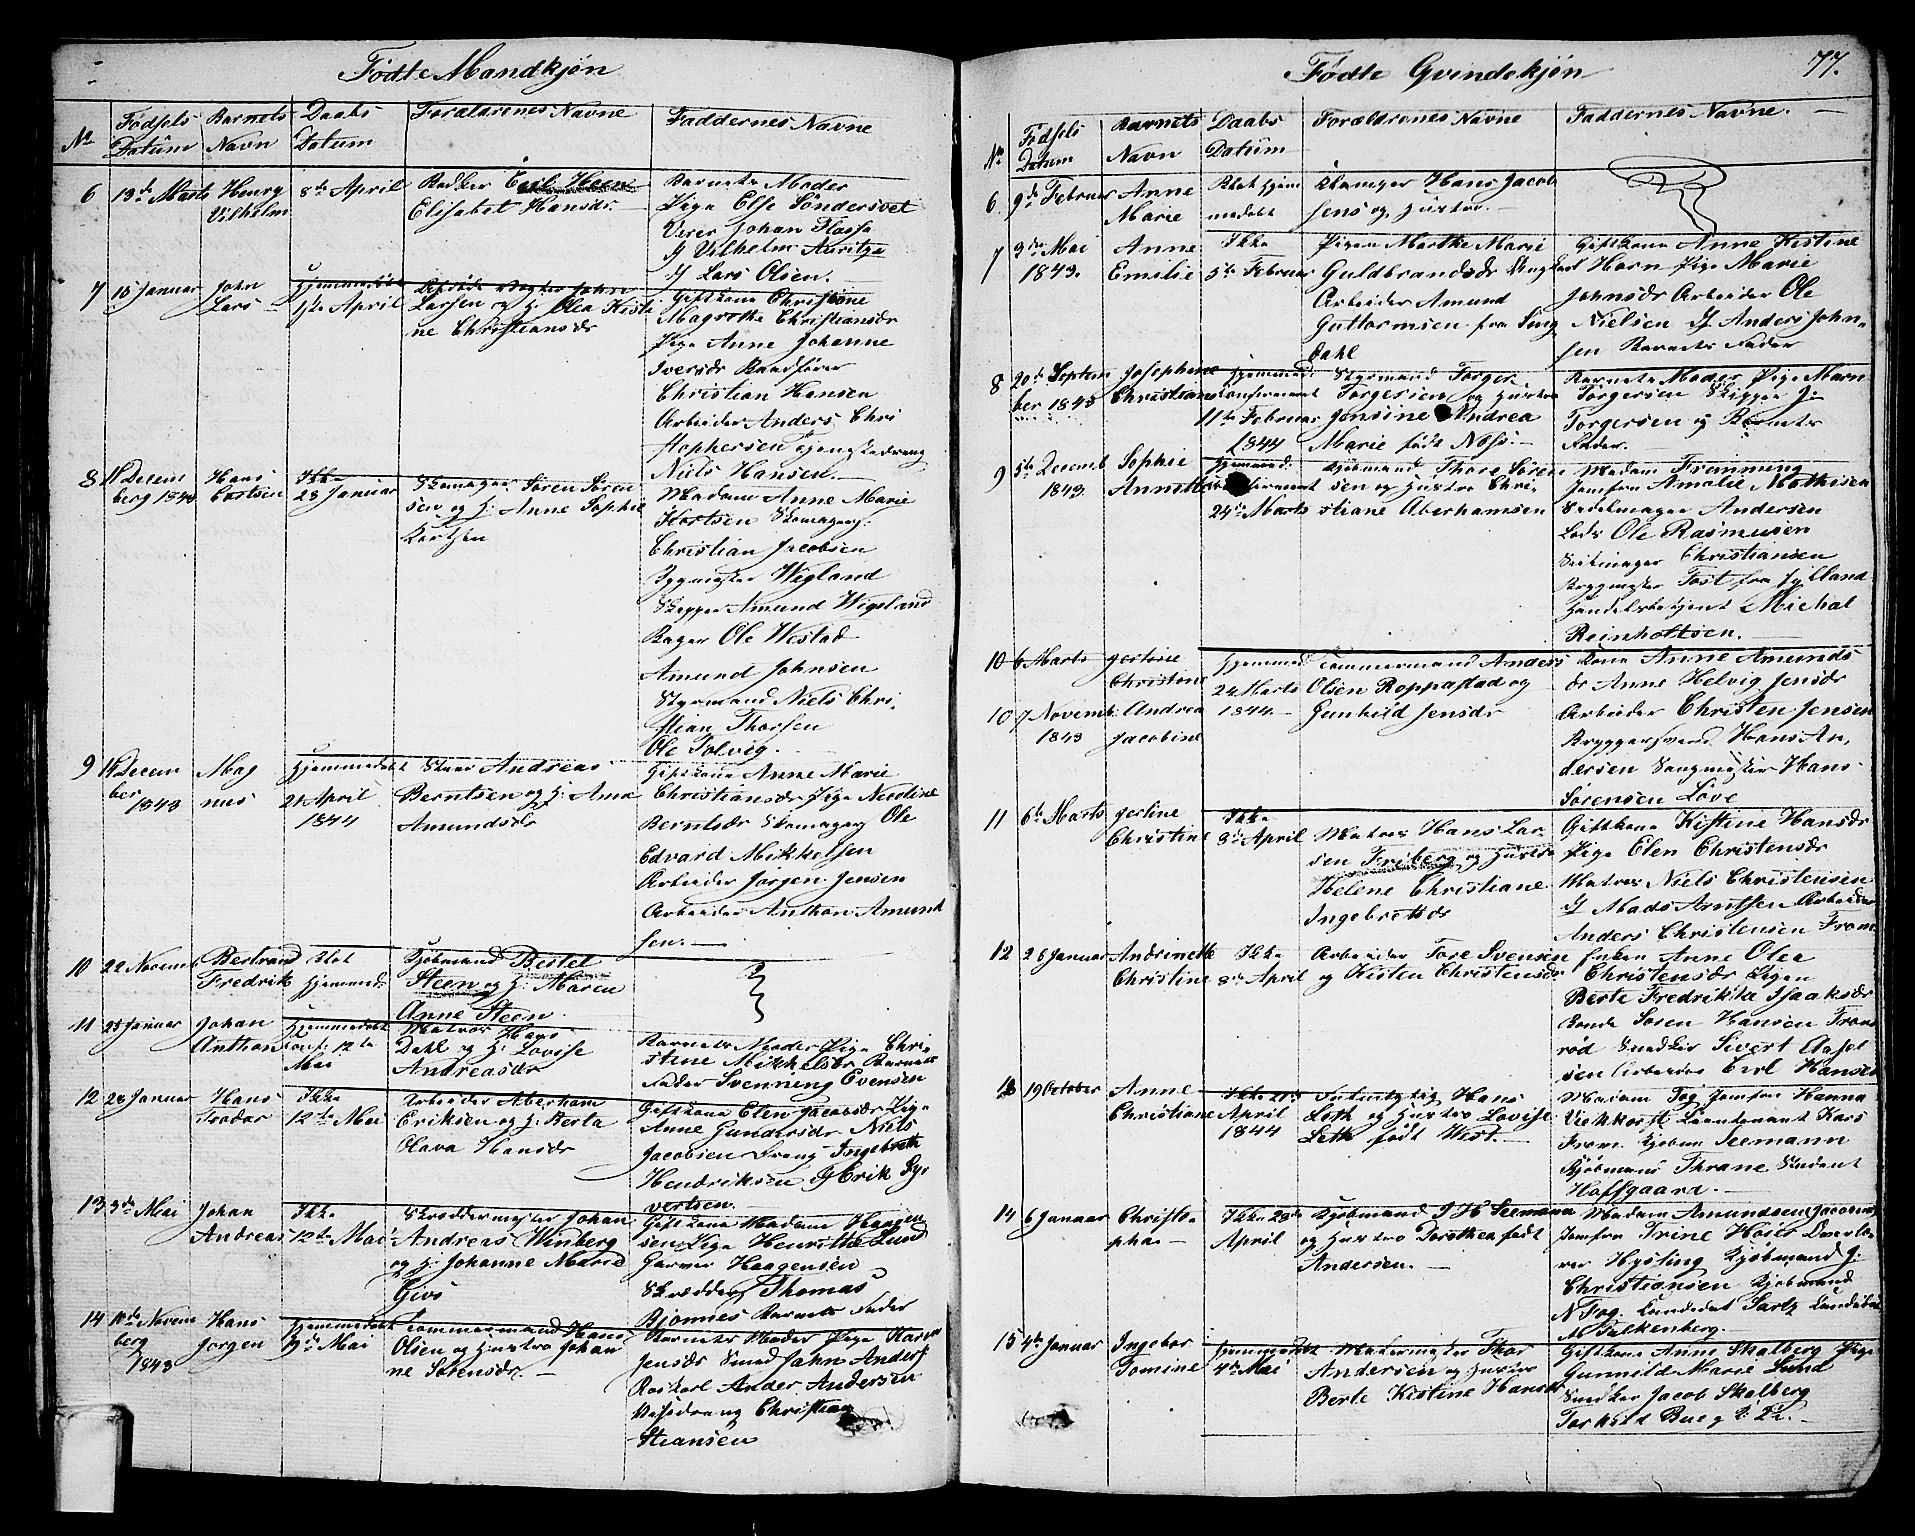 Fødte Mandkjøn
No
Fødsels Datum
Barnets Navn
Daabs Datum
Forældrenes Navne
Faddernes Navne
6
13de Marts
Henry
Vilhelm
8de April
Bødker Carl Heen
Elisabet Hansdr.
Barnets Moder
Pige Else Søndersvet
Johan Flasse
Vilhelm
Lars Olsen.
7
18 Januar
John
Lars
Hjemmedøbt
1ste April
Larsen og H. Olea Kisti
ne Christiansdr
Giftkone Christiane
Magrethe Christiansdr
Pige Anne Johanne
Iversdr Baadfører
Christian Hansen
Arbeider Anders Chri
stophersen
Niels Hansen
8
Decem
berg 1843
Hans
Ikke
28 Januar
Skomager Søren Søren
sen og H. Anne Sophie
Madam Anne Marie
Skomager
Christian Jacobsen
Bygmester Wigland
Skipper Amund Wigeland
Bager Ole Westad
Amund Johnsen
Styrmand Niels Chri
stian Thorsen
Ole Solvig.
9
Decem
ber
1843
Mag
nus
Hjemmedøbt
21 April
1844
Andreas
Berntsen og H. Ana
Amundsdr
Giftkone Anne Marie
Christiansdr Pige Nicoline
Berntsdr Skomager Ole
Edvard Mikkelsen
Arbeider Jørgen Jensen
Arbeider Anthon Amund
sen.
10
22 Novemb
Bertrand
Fredrik
Blot
Hjemmed:
Kjøbmand Bertel
Steen og H. Maren
Anne Steen
11
25 Januar
Johan
Anthon
Hjemmedøbt
conf. 12te
Mai
Matros Hans
Dahl og H. Lovise
Andreasdr
Barnets Moder Pige Chri
stine Mikkelsdr Barnets
Fader Svenning Evensen
12
28 Januar
Hans
Ikke
12te Mai
Arbeider Aberham
Eriksen og H. Berta
Olava Hansdr
Giftkone Elen Jacobsdr Pige
Anne Gundersdr Niels
Jacobsen Dreng Ingebreth
Hendriksen og Erik Sy
vertsen.
13
3de Mai
Johan
Andreas
Ikke
12te Mai
Skræddermester Johan
Andreas Winberg
og H. Johanne Marie
Giftkone Madam Haagen
sen Pige Henriette Lund
Garver Haagensen
Skrædder Thomas
Bjønnes Barnets Fader
14
Novem
berg
1843
Hans
Jørgen
Hjemmedøbt
9de Mai
Tømmermand Hans
Olsen og Hustro Johan
ne Sørensdr.
Barnets Moder Pige Karen
Jensdr Smed John Anders
Ander Andersen
Christian
Stiansen
Fødte Qvindekjøn
77.
No
Fødsels Datum
Barnets Navn
Daabs Datum
Forældrenes Navne
Faddernes Navne.
6
9de Februar
Anne
Marie
Blot hjem
medøbt
Hans Jacob
sens og Hustro.
7
3de Mai
1843.
Anne
Emilie
Ikke
5te Februar
Pigen Marthe Marie
Guldbrandsdr
Arbeider Amund
Guttormsen fra Ring
dahl
Giftkone Anne Kistine
Horn Pige Marie
Johnsdr Arbeider Ole
Nielsen og Anders John
sen Barnets Fader
8
20de Septem
ber 1843
Josephine
Christiane
Hjemmed:
confirmeret
11te Februar
1844
Styrmand Torger
Torgersen og Hustro
Jensine Andrea
Marie født Næss.
Barnets Moder Pige Maren
Torgersen Skipper J.
Torgersen og Barnets
Fader.
9
5te Decemb
1843
Sophie
Annette
Hjemmed:
24de Marts
Kjøbmand Thore Søren
sen og Hustro Chri
stiane Aberhamsen
Madam Fremming
Jomfru Amalie Mathisen
Sadelmager Andersen
Lods Ole Rasmusen
Seilmager Christiansen
Bygmester Tost fra Jylland
Handelsbetjent Michal
Reinholtsen.
10 6 Marts
Gertine
Christine
10
7 Novemb:
1843
Andrea
Jacobine
Hjemmed
24 Marts
1844
Tømmermand Anders
Olsen Roppestad og
Gunhild Jensdr
Kone Anne Amunds
dr Anne Helvig Jensdr
Arbeider Christen Jensen
Bryggersvend Hans An
dersen Sangmester Hans
Sørensen Løve
11
6te Marts
Gertine
Christine
Ikke
8de April
Matros Hans Lar
sen Friberg og Hustro
Helene Christiane
Ingebretsdr
Giftkone Kistine Hansdr
Pige Elen Christensdr
Matros Niels Christensen
og Mads Arntsen Arbeider
Anders Christensen From
12
26 Januar
Andrinette
Christine
Ikke
8de April
Arbeider Tore Svensen
og Kisten Christensdr
Enken Anne Olea
Christensdr Pigen
Berte Fredrikke Isaaksdr
Bonde Søren Hansen From
rød Snedker Sivert Aasel
sen Arbeider Carl Hansen
13
19 October
Anne
Christiane
Ikke
April
1844
Hans
Leth og Hustro Lovise
Leth født West.
Madam Fog Jomfru Hanna
Lieutenant Kars
From Kjøbm Seemann
Kjøbmand Thrane Student
Hoffgaard.
14
6 Januar
Christo
pha
Ikke 28de
April
Kjøbmand J H Seemann
og Hustro Dorothea født
Andersen.
Madam Amundsen
Jomfru Trine Høier
Hysling Kjøbmand J.
Christiansen Kjøbmand
N Fog.
M Falkenberg.
15
4de Januar
Ingebor
Tomine
Hjemmedøbt
4de Mai
Thor
Andersen og Hustro
Berte Kistine Hansdr
Giftkone Anne Skalberg Pige
Gunnild Marie Lund
Snedker Jacob Skalberg